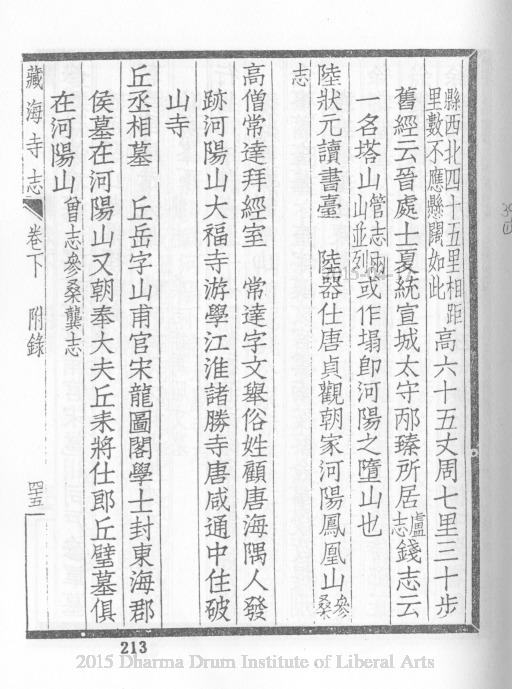 縣西北四十五里相距里數不應懸闊如此高六十五丈周七里三十步
舊經云晉處士夏統宣城太守邴臻所居盧志錢志云
一名塔山管志兩山並列或作塌卽河陽之墮山也
陸狀元讀書臺　陸器仕唐貞觀朝家河陽鳳凰山參桑
志
高僧常達拜經室　常達字文舉俗姓顧唐海隅人發
跡河陽山大福寺游學江淮諸勝寺唐咸通中住破
山寺
丘丞相墓　丘岳字山甫官宋龍圖閣學士封東海郡
侯墓在河陽山又朝奉大夫丘耒將仕郎丘壁墓俱
在河陽山曾志參桑龔志
藏海寺志　卷下　附錄　四五
213
2015 Dharma Drum Institute of Liberal Arts